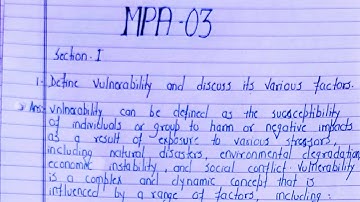 MPA-03
Section-I
1- Define Vulnerability and discuss its various factors.
Ans: Vulnerability can be defined as the susceptibility
of individuals or group to harm or negative impacts
as a result of exposure to various stressors,
including natural disasters, environmental degradation,
economic instability, and social conflict. Vulnerability
is a complex and dynamic concept that is
influenced by a range of factors, including: